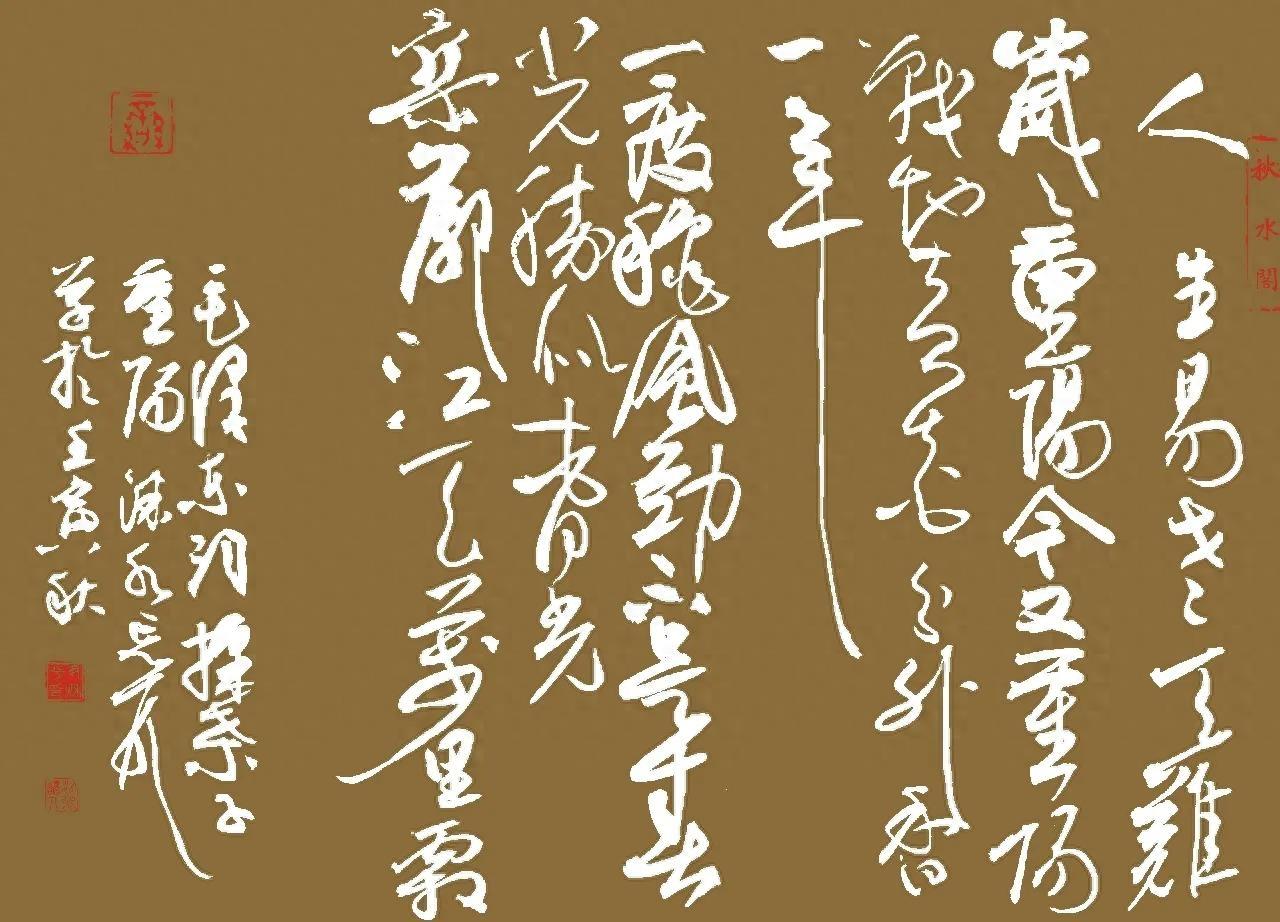 秋水閣
人生易老〻天難
歲〻重陽今又重陽
戰地黄花分外香
一年
一度穐風勁不是春
光勝似春光
寥廓江天萬里霜
毛澤東詞採桑子
重陽
草於壬寅秋